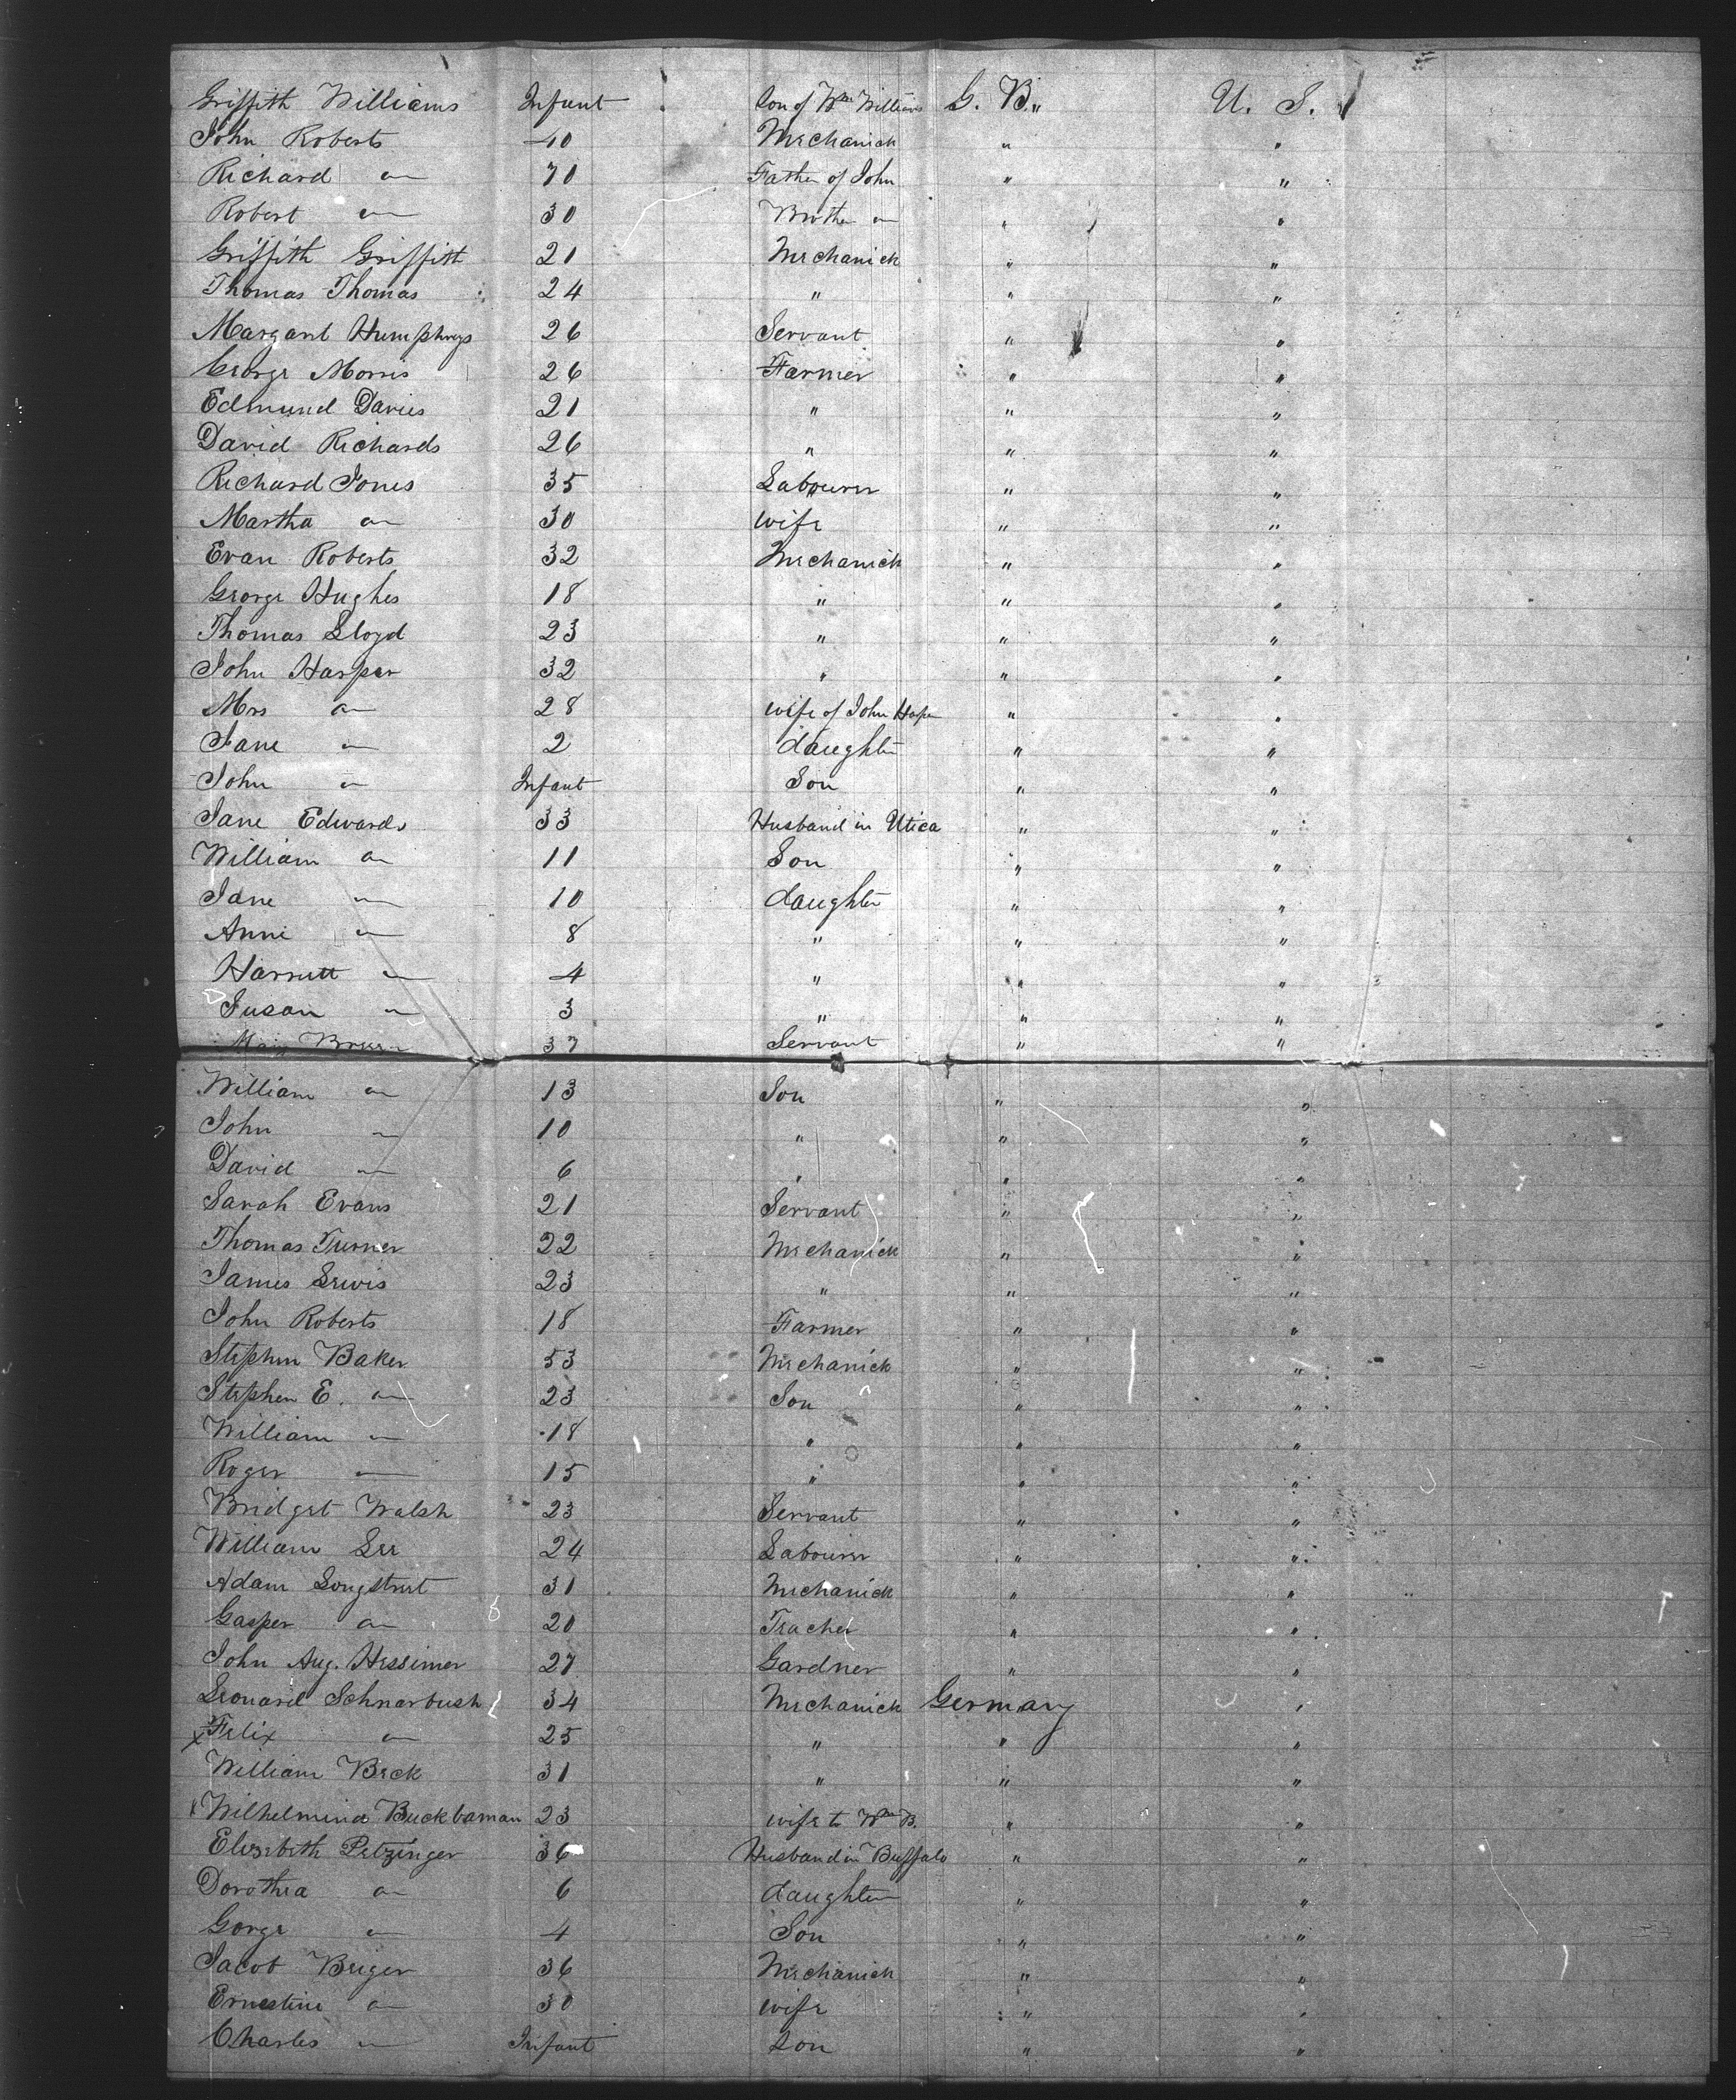 Griffith Williams Infant Son of Wm Williams G. B. U. S.
John Roberts 40 Mechanick " "
Richard " 70 Father of John " "
Robert " 30 Brother " " "
Griffith Griffith 21 Mechanick " "
Thomas Thomas 24 " " "
Margaret Humphreys 26 Servant " "
George Morris 26 Farmer " "
Edmund Davies 21 " " "
David Richards 26 " " "
Richard Jones 35 Labourer " "
Martha " 30 wife " "
Evan Roberts 32 Mechanick " "
George Hughes 18 " " "
Thomas Lloyd 23 " " "
John Harper 32 " " "
Mrs " 28 wife of John Harper " "
Jane " 2 daughter " "
John " Infant Son " "
Jane Edwards 33 Husband in Utica " "
William " 11 Son " "
Jane " 10 daughter " "
Anne " 8 " " "
Harriett " 4 " " "
Susan " 3 " " "
37 Servant " "
William " 13 Son " "
John " 10 " " "
David " 6 " " "
Sarah Evans 21 Servant " "
Thomas Turner 22 Mechanick " "
James Lewis 23 " " "
John Roberts 18 Farmer " "
Stephen Baker 53 Mechanick " "
Stephen E. " 23 Son " "
William " 18 " " "
Roger " 15 " " "
Bridget Walsh 23 Servant " "
William Lee 24 Labourer " "
Adam Longstreet 31 Mechanick " "
Gasper " 20 Teacher " "
John Aug. Hessimer 27 Gardner " "
Leonard Schnarbush 34 Mechanick Germany "
x Felix " 25 " " "
William Beck 31 " " "
x Wilhelmina Buckbaman 23 wife to Wm B. " "
Elizebeth Petzinger 36 Husband in Buffalo " "
Dorothea " 6 daughter " "
Gorge " 4 Son " "
Jacob Beiger 36 Mechanick " "
Ernestine " 30 wife " "
Charles " Infant Son " "